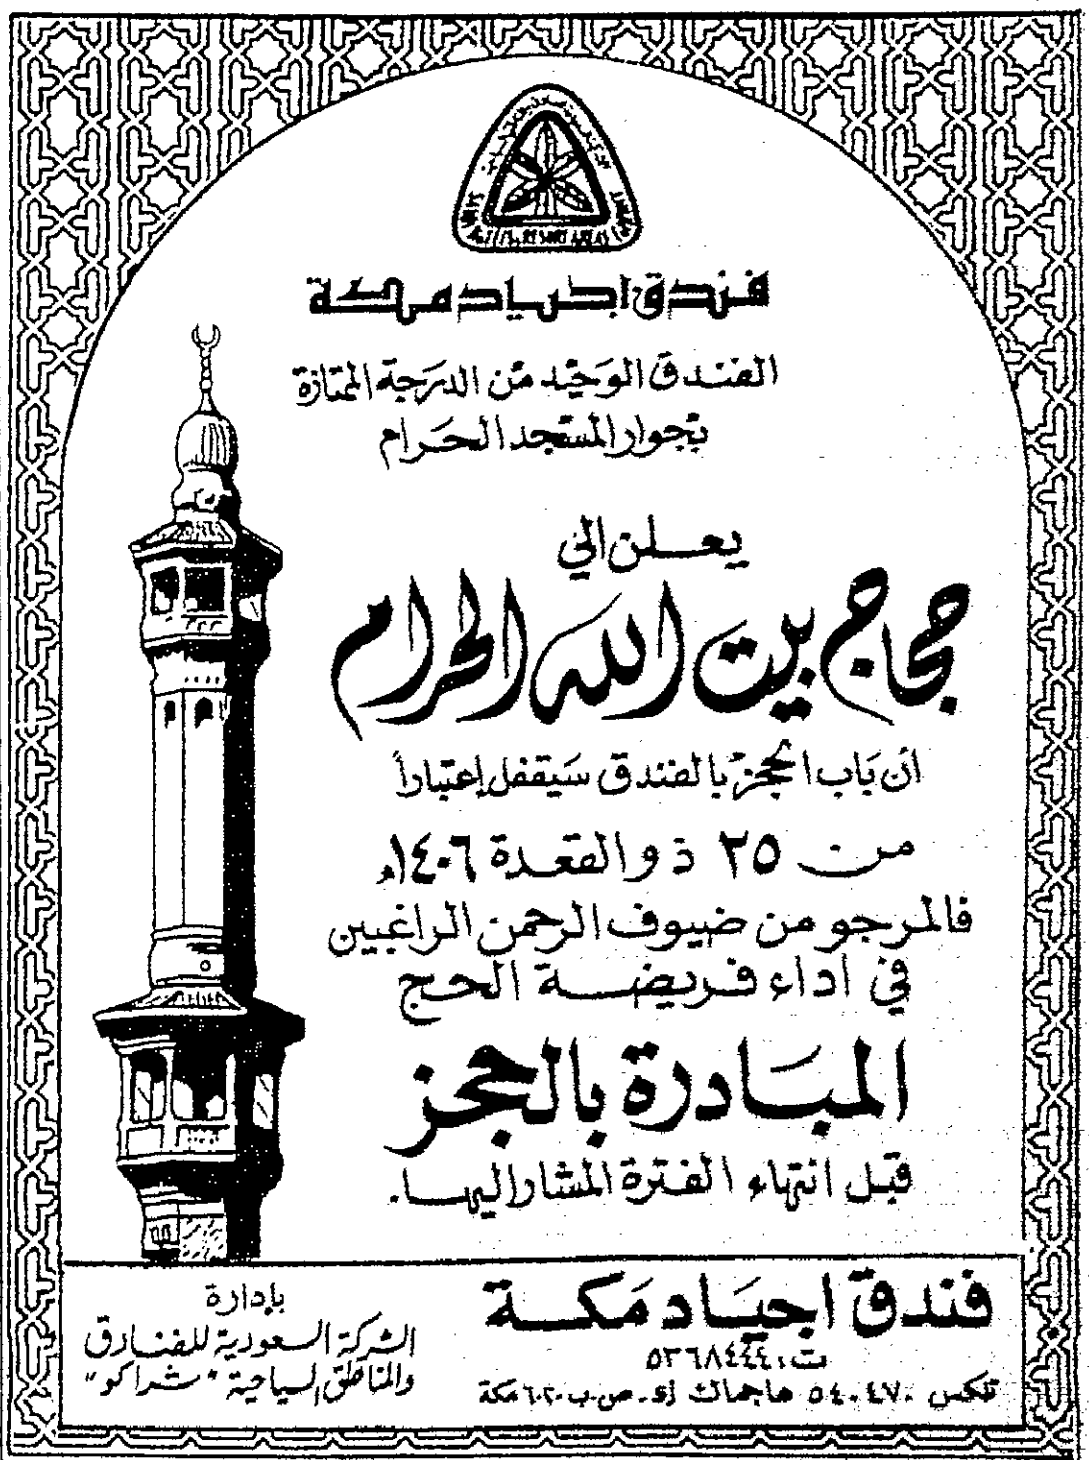 فندق اجياد مكة
الفندق الوحيد من الدرجة الممتازة
بجوار المسجد الحرام
يعلن الى
حجاج بيت الله الحرام
أن باب الحجز بالفندق سيقفل إعتباراً
من ٢٥ ذو القعدة ١٤٠٦هـ
فالمرجو من ضيوف الرحمن الراغبين
في اداء فريضة الحج
المبادرة بالحجز
قبل انتهاء الفترة المشار اليها.
فندق اجياد مكة
ت: ٥٣٦٨٤٤٤
تلكس ٥٤٠٤٧٠ هاجماك إى - ص.ب ٦٠٢٠ مكة
بإدارة
الشركة السعودية للفنادق
والمناطق السياحية "شراكو"